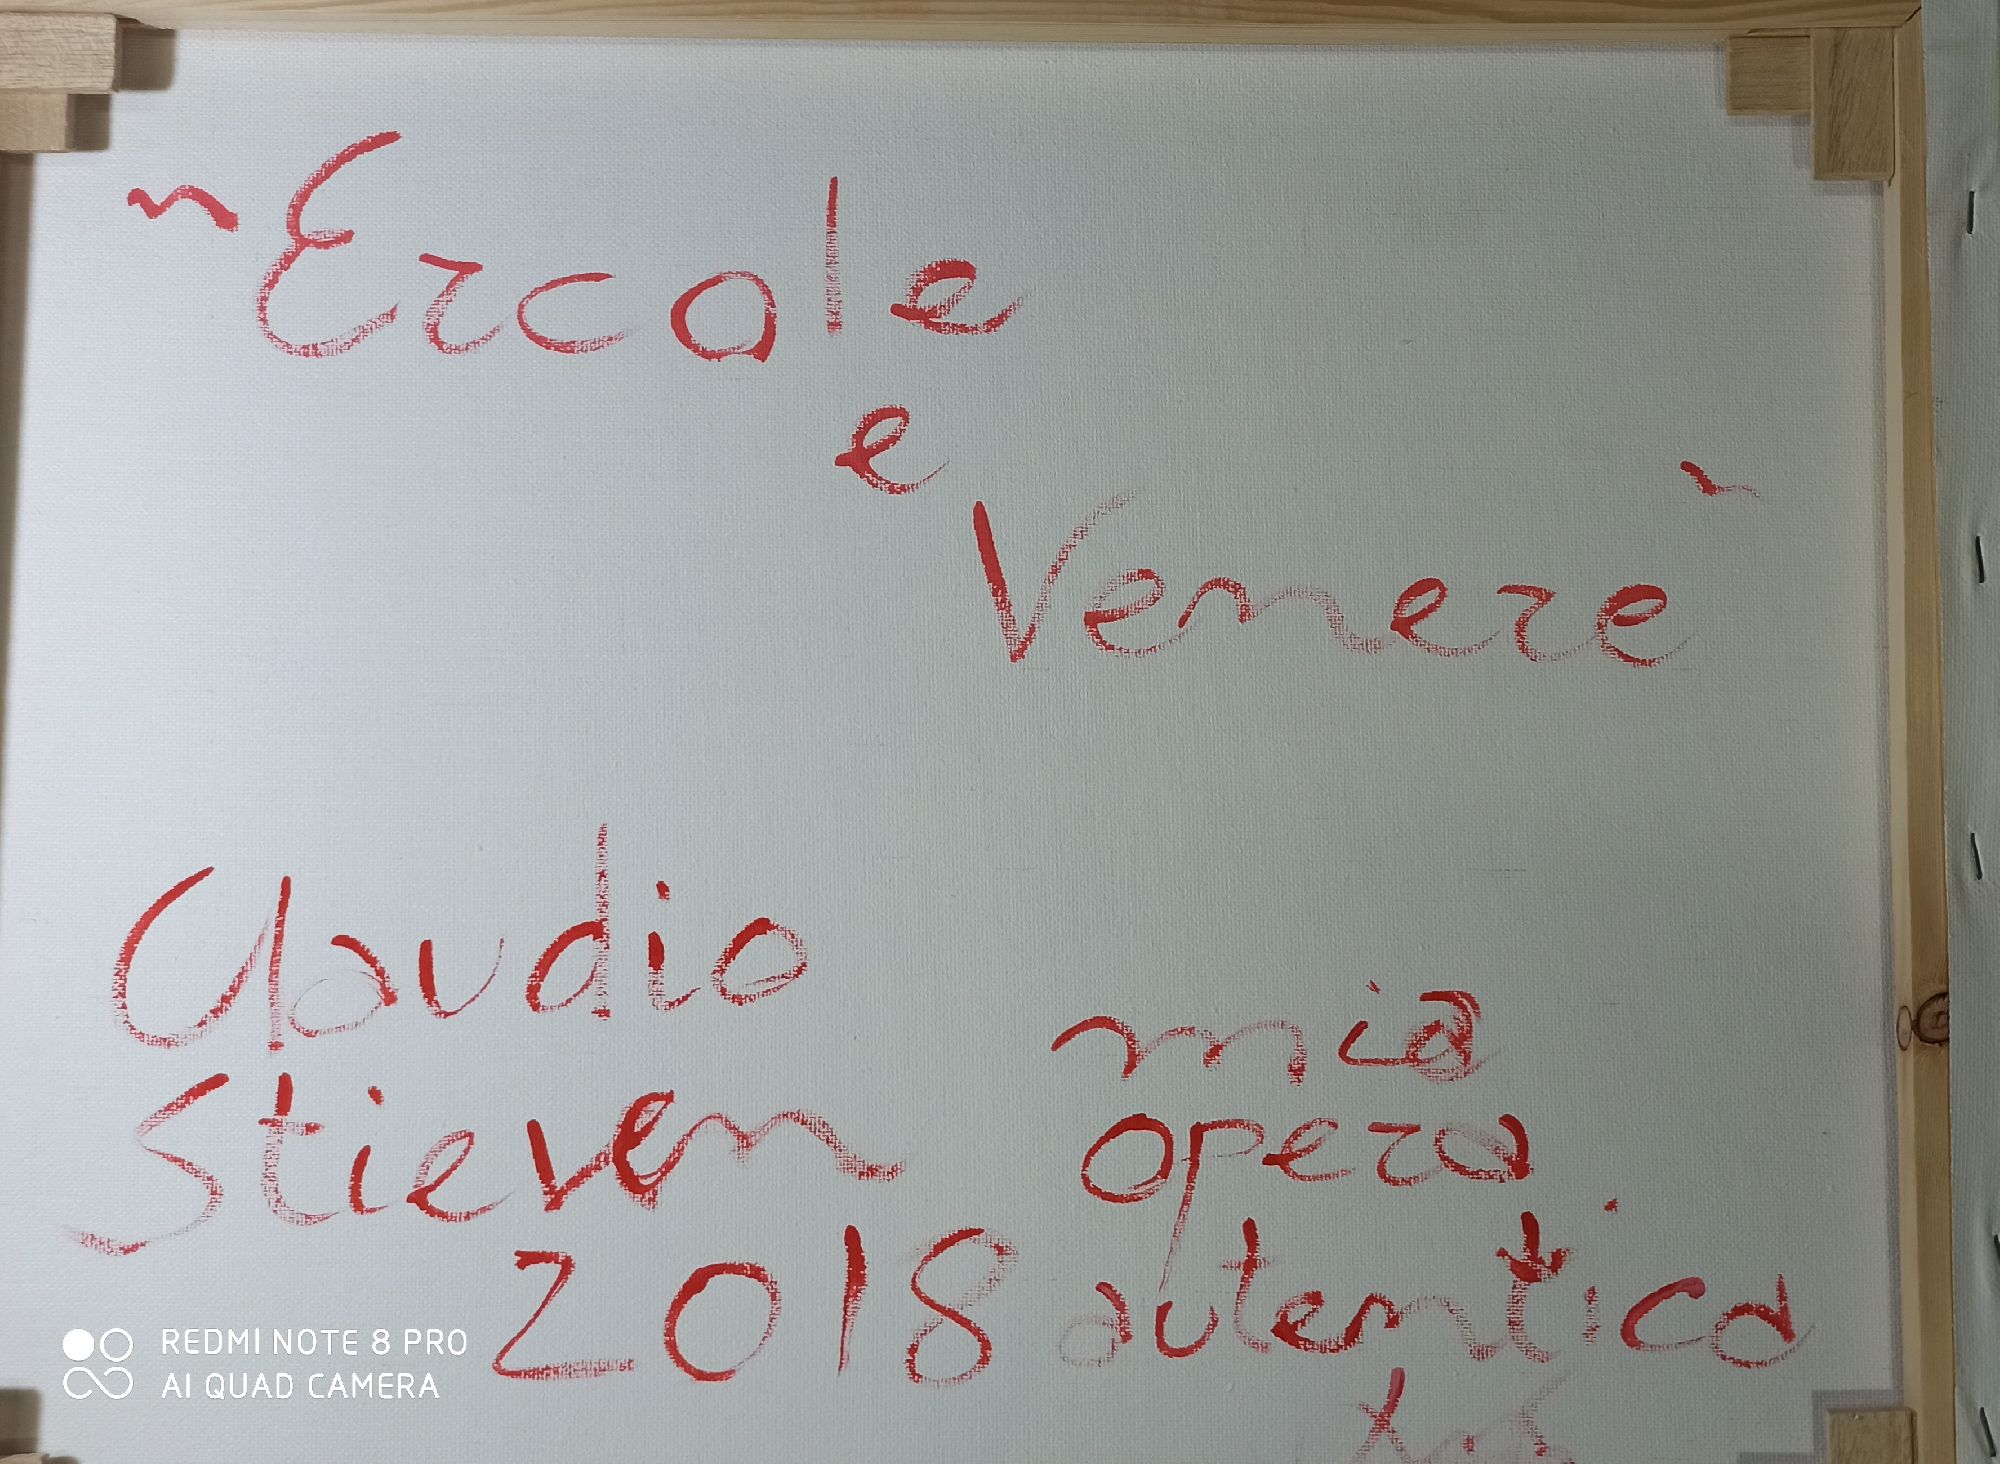 "Ercole
e
Venere"
Claudio
Stieven
2018
mia
opera
autentica
REDMI NOTE 8 PRO
AI QUAD CAMERA